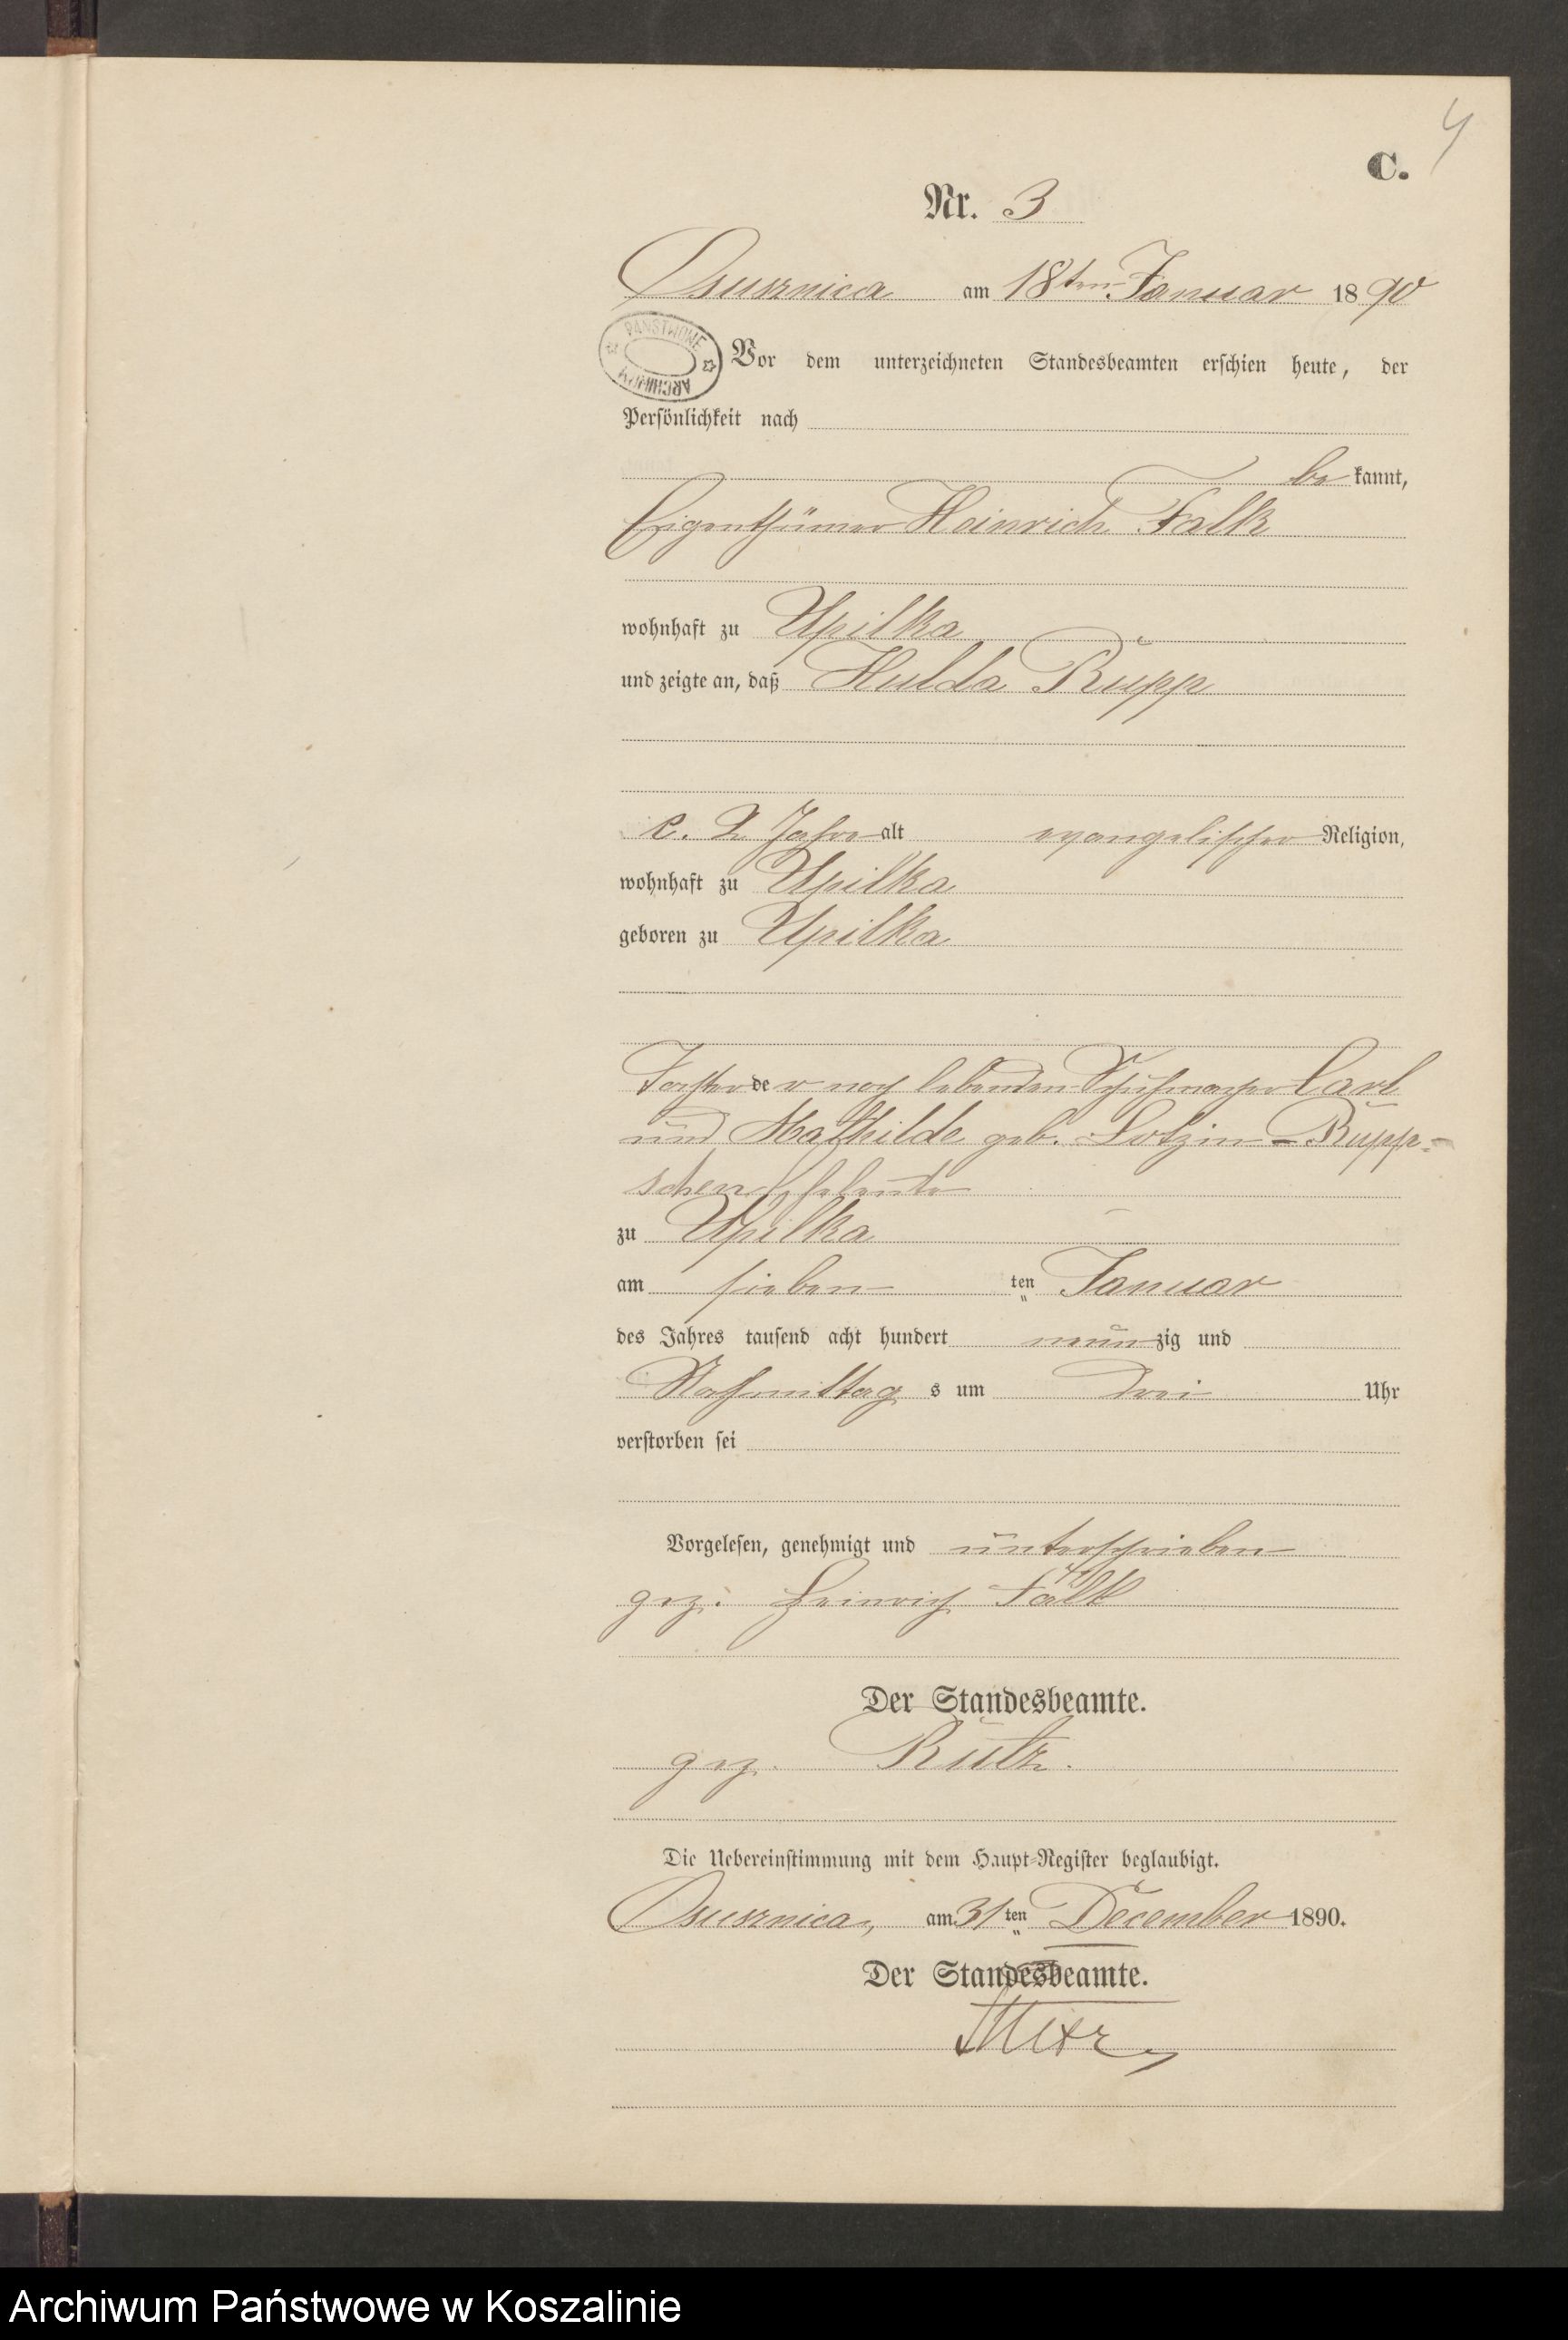 4
C.
Nr. 3
Osusznica am 18ten Januar 1890
PAŃSTWOWE ARCHIWUM
Vor dem unterzeichneten Standesbeamten erschien heute, der
Persönlichkeit nach
bekannt,
Eigenthümer Heinrich Falk
wohnhaft zu Upilka
und zeigte an, daß Hulda Rupp
c. 2 Jahre alt evangelischer Religion,
wohnhaft zu Upilka
geboren zu Upilka
Tochter der noch lebenden Schuhmacher Carl
und Mathilde geb. Lotzin - Rupp-
schen Eheleute
zu Upilka
am sieben ten Januar
des Jahres tausend acht hundert neunzig und
Nachmittags um drei Uhr
verstorben sei
Vorgelesen, genehmigt und unterschrieben
gez. Heinrich Falk
Der Standesbeamte.
gez. Rutz.
Die Uebereinstimmung mit dem Haupt-Register beglaubigt.
Osusznica, am 31ten December 1890.
Der Standesbeamte.
Archiwum Państwowe w Koszalinie